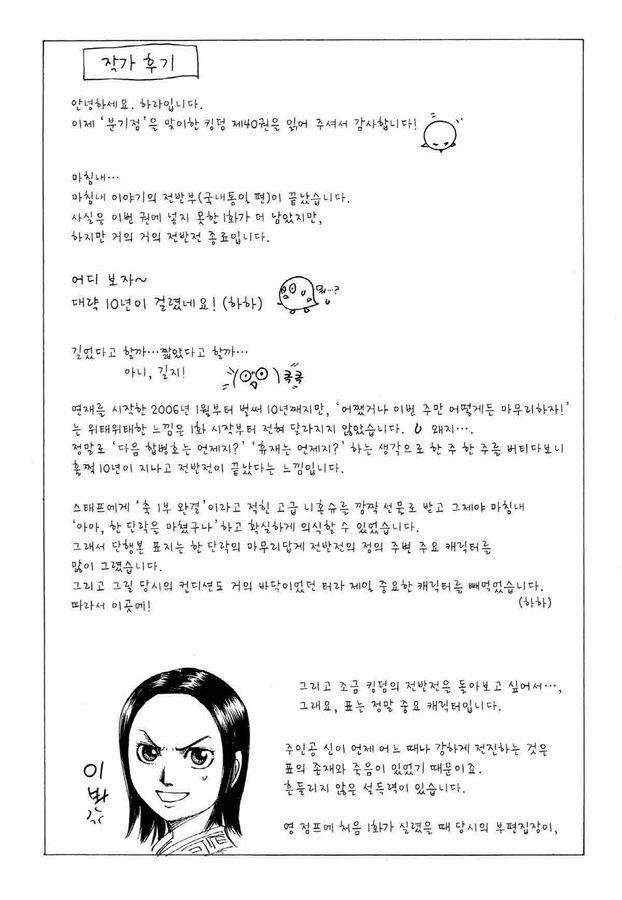 작가 후기
안녕하세요. 하라입니다.
이제 '분기점'을 맞이한 킹덤 제40권을 읽어 주셔서 감사합니다!
마침내…
마침내 이야기의 전반부(국내통일 편)이 끝났습니다.
사실은 이번 권에 넣지 못한 1화가 더 남았지만,
하지만 거의 거의 전반전 종료입니다.
어디 보자~
대략 10년이 걸렸네요! (하하)
뭐…?
길었다고 할까…짧았다고 할까…
아니, 길지!
콕콕
연재를 시작한 2006년 1월부터 벌써 10년째지만, '어쨌거나 이번 주만 어떻게든 마무리하자!'
는 위태위태한 느낌은 1화 시작부터 전혀 달라지지 않았습니다. 왜지….
정말로 '다음 합병호는 언제지?' '휴재는 언제지?' 하는 생각으로 한 주 한 주를 버티다보니
훌쩍 10년이 지나고 전반전이 끝났다는 느낌입니다.
스태프에게 '축 1부 완결'이라고 적힌 고급 니혼슈를 깜짝 선물로 받고 그제야 마침내
'아아, 한 단락을 마쳤구나'하고 확실하게 의식할 수 있었습니다.
그래서 단행본 표지는 한 단락의 마무리답게 전반전의 정의 주변 주요 캐릭터를
많이 그렸습니다.
그리고 그릴 당시의 컨디션도 거의 바닥이었던 터라 제일 중요한 캐릭터를 빼먹었습니다.
따라서 이곳에! (하하)
그리고 조금 킹덤의 전반전은 돌아보고 싶어서…,
그래요, 표는 정말 중요 캐릭터입니다.
이봔
주인공 신이 언제 어느 때나 강하게 전진하는 것은
표의 존재와 죽음이 있었기 때문이죠.
흔들리지 않은 설득력이 있습니다.
영 점프에 처음 1화가 실렸을 때 당시의 부편집장이,